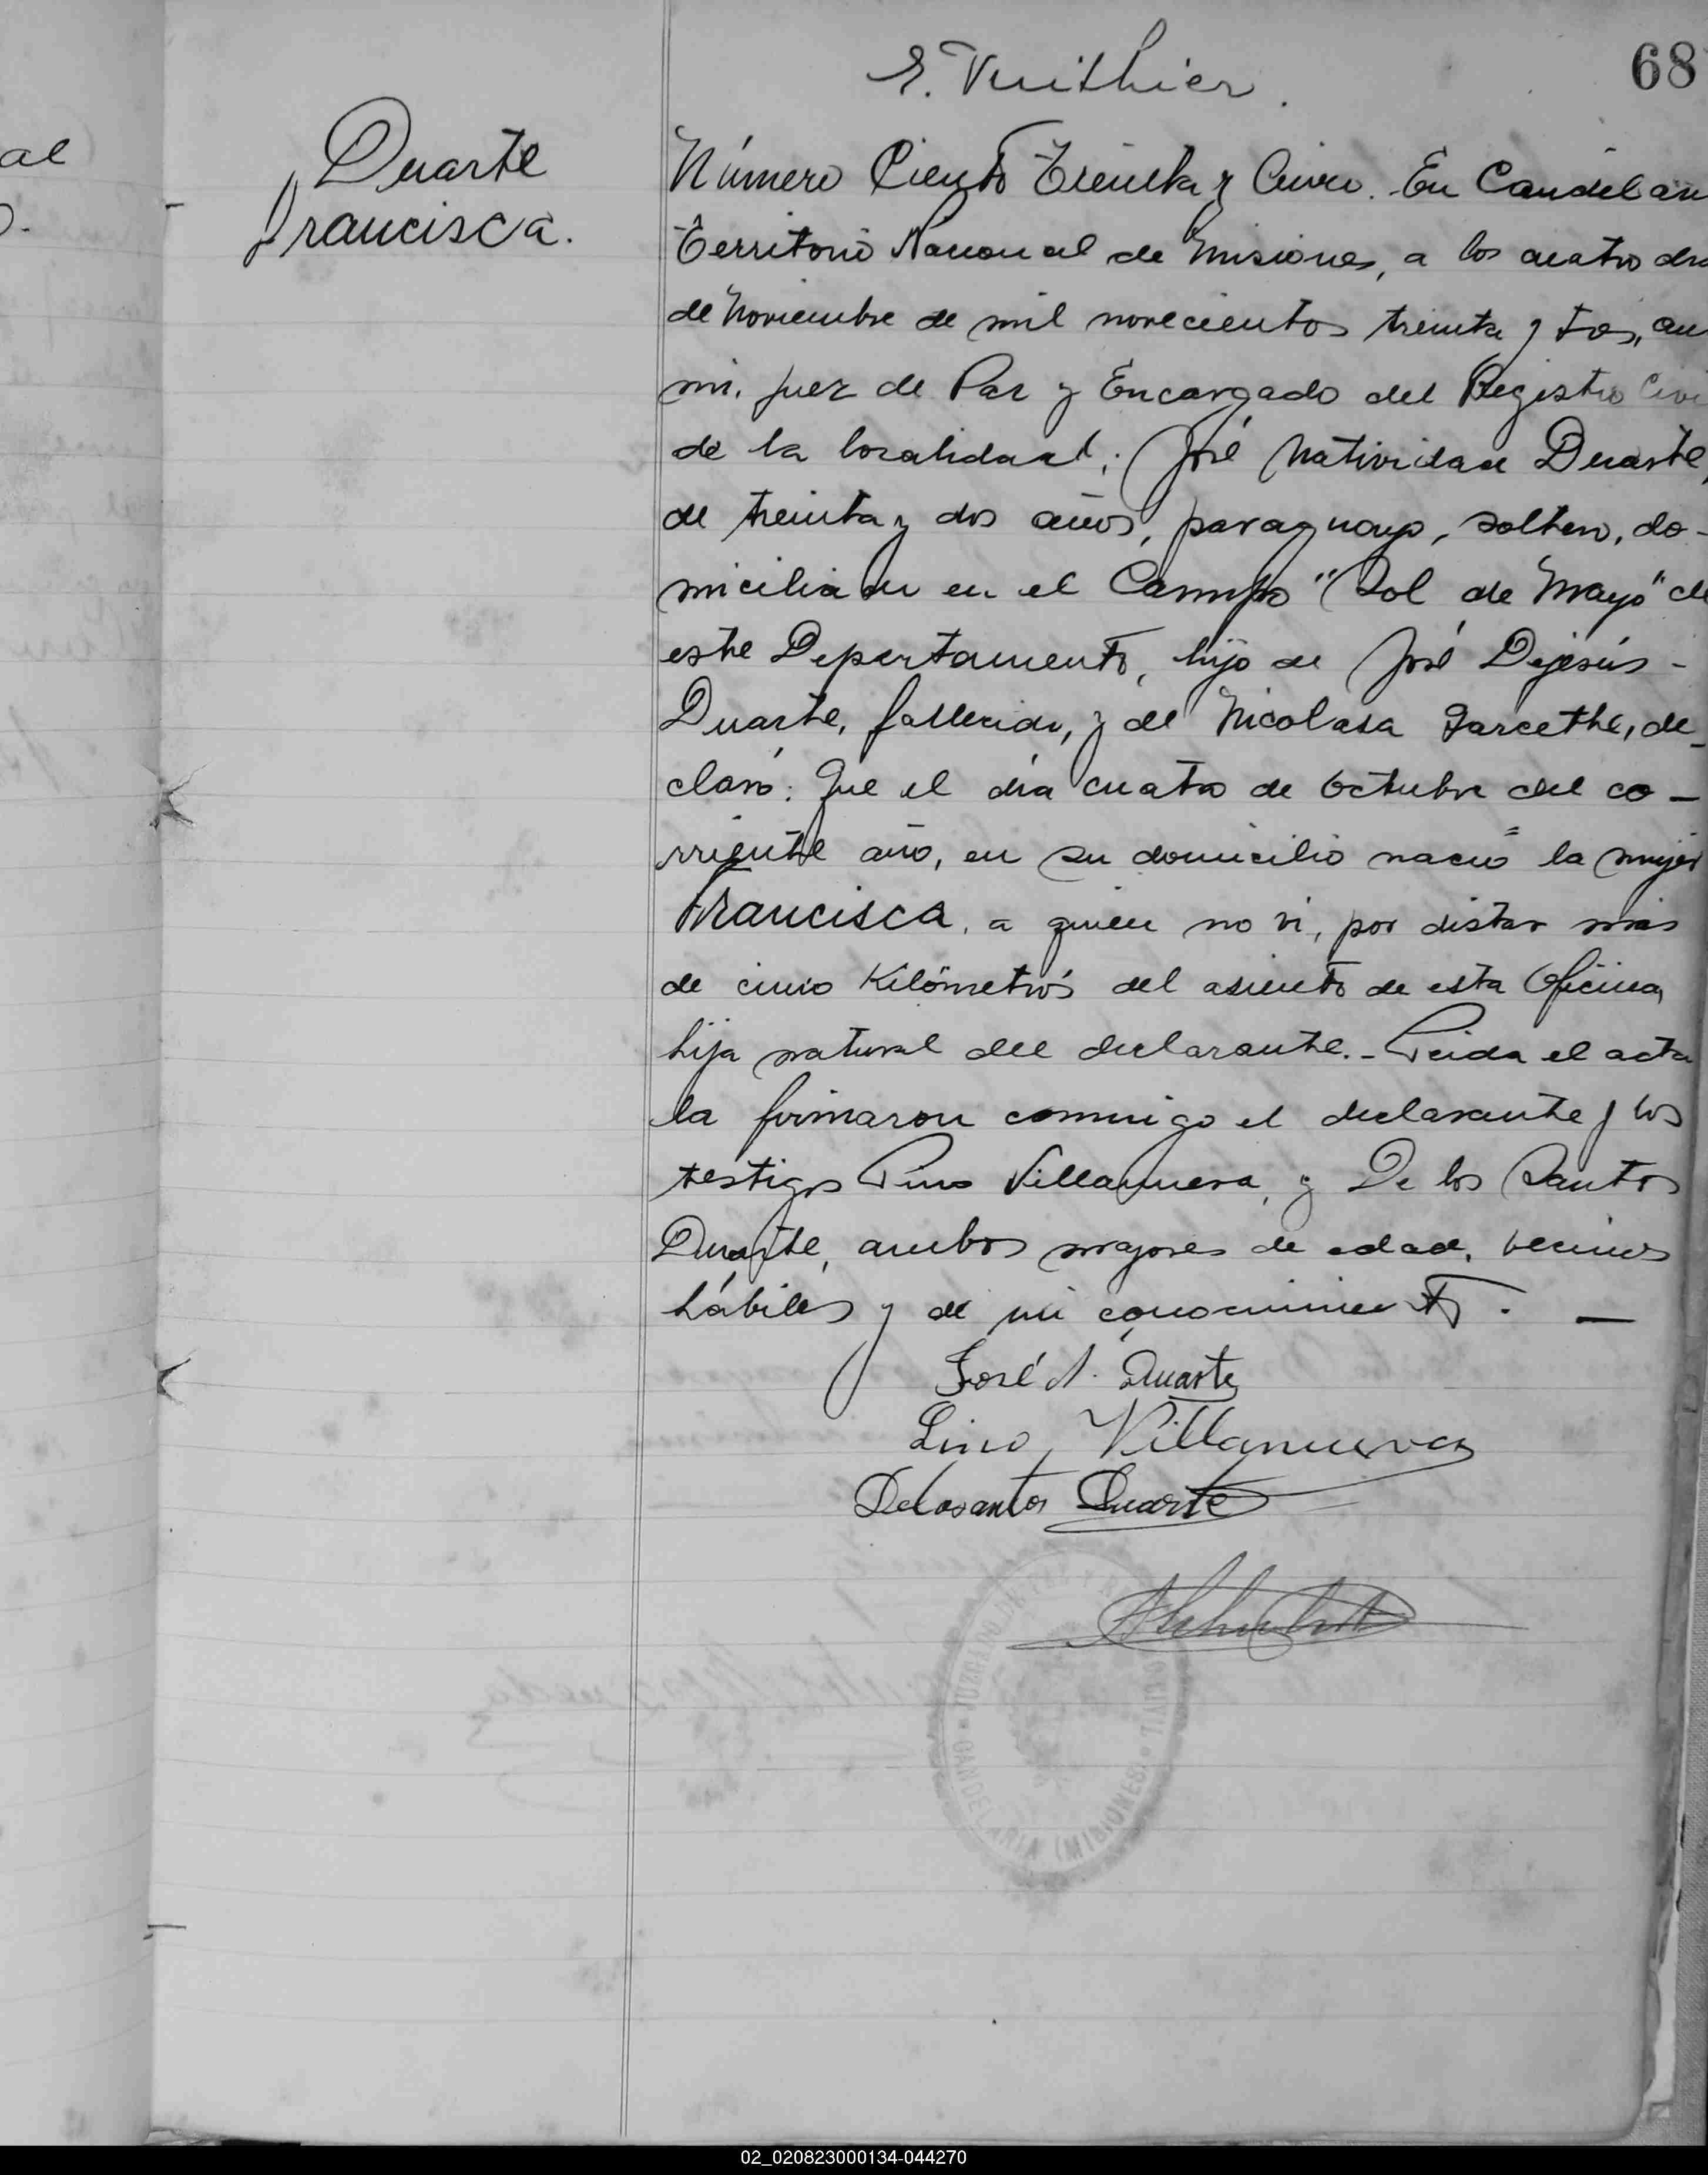 E. Vuithier.
68
al
o.
Duarte
Francisca.
Número Ciento Treinta y Cinco. En Candelar
Territorio Nacional de Misiones, a los cuatro día
de Noviembre de mil novecientos treinta y tres, an
mi, Juez de Paz y Encargado del Registro Civi
de la localidad; José Natividad Duarte,
de treinta y dos años, paraguayo, soltero, do-
miciliado en el Campo "Sol de Mayo" de
este Departamento, hijo de José Dejesús -
Duarte, fallecido, y de Nicolasa Garcethe, de-
claró: Que el día cuatro de Octubre del co-
rriente año, en su domicilio nació la mujer
Francisca, a quien no vi, por distar más
de cinco Kilómetros del asiento de esta Oficina,
hija natural del declarante.- Leida el acta
la firmaron conmigo el declarante y los
testigos Lino Villanueva, y De los Santos
Duarte, ambos mayores de edad, vecinos
hábiles y de mi conocimiento. —
José N. Duarte
Lino Villanueva
Delosantos Duarte
JUZGADO DE PAZ Y R CIVIL
CANDELARIA (MISIONES)
02_020823000134-044270